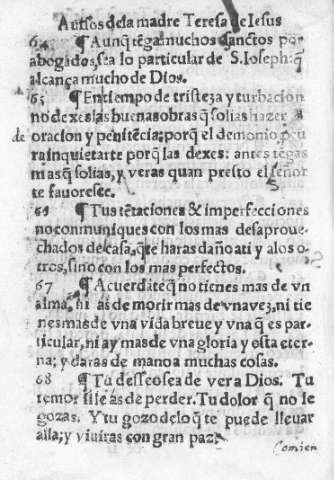 Auisos dela madre Teresa de Iesus
64 ¶ Aunq̃ tẽga muchos sanctos por
abogados, sea lo particular de S. Ioseph: q̃
alcança mucho de Dios.
65 ¶ En tiempo de tristeza y turbacion
no dexes las buenas obras q̃ solias hazer
de oracion y penitẽcia; porq̃ el demonio procu
ra inquietarte porq̃ las dexes: antes tẽgas
mas q̃ solias, y veras quan presto el señor
te fauoresce.
66 ¶ Tus tẽtaciones & imperfecciones
no comuniques con los mas desaproue-
chados de casa, q̃ te haras daño a ti y a los o
tros, sino con los mas perfectos.
67 ¶ Acuerdate q̃ no tienes mas de vn
alma, ni as de morir mas de vna vez, ni tie
nes mas de vna vida breue y vna q̃ es par-
ticular, ni ay mas de vna gloria y esta eter-
na; y daras de mano a muchas cosas.
68 ¶ Tu desseo sea de ver a Dios. Tu
temor si le as de perder. Tu dolor q̃ no le
gozas. Y tu gozo de lo q̃ te puede lleuar
alla; y viuiras con gran paz.
Comien